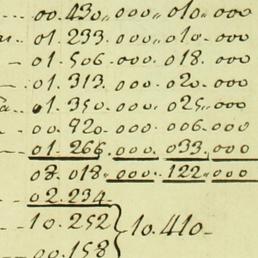 00.430,, 000,, 010,, 000
01.233. 000. 010. 000
01.506. 000. 018. 000
01.313. 000. 020. 000
01.350. 000. 025. 000
00.920. 000. 006. 000
01.266. 000. 033. 000
08.018. 000. 122. 000
02.234
10.252 } 10.410
00.158